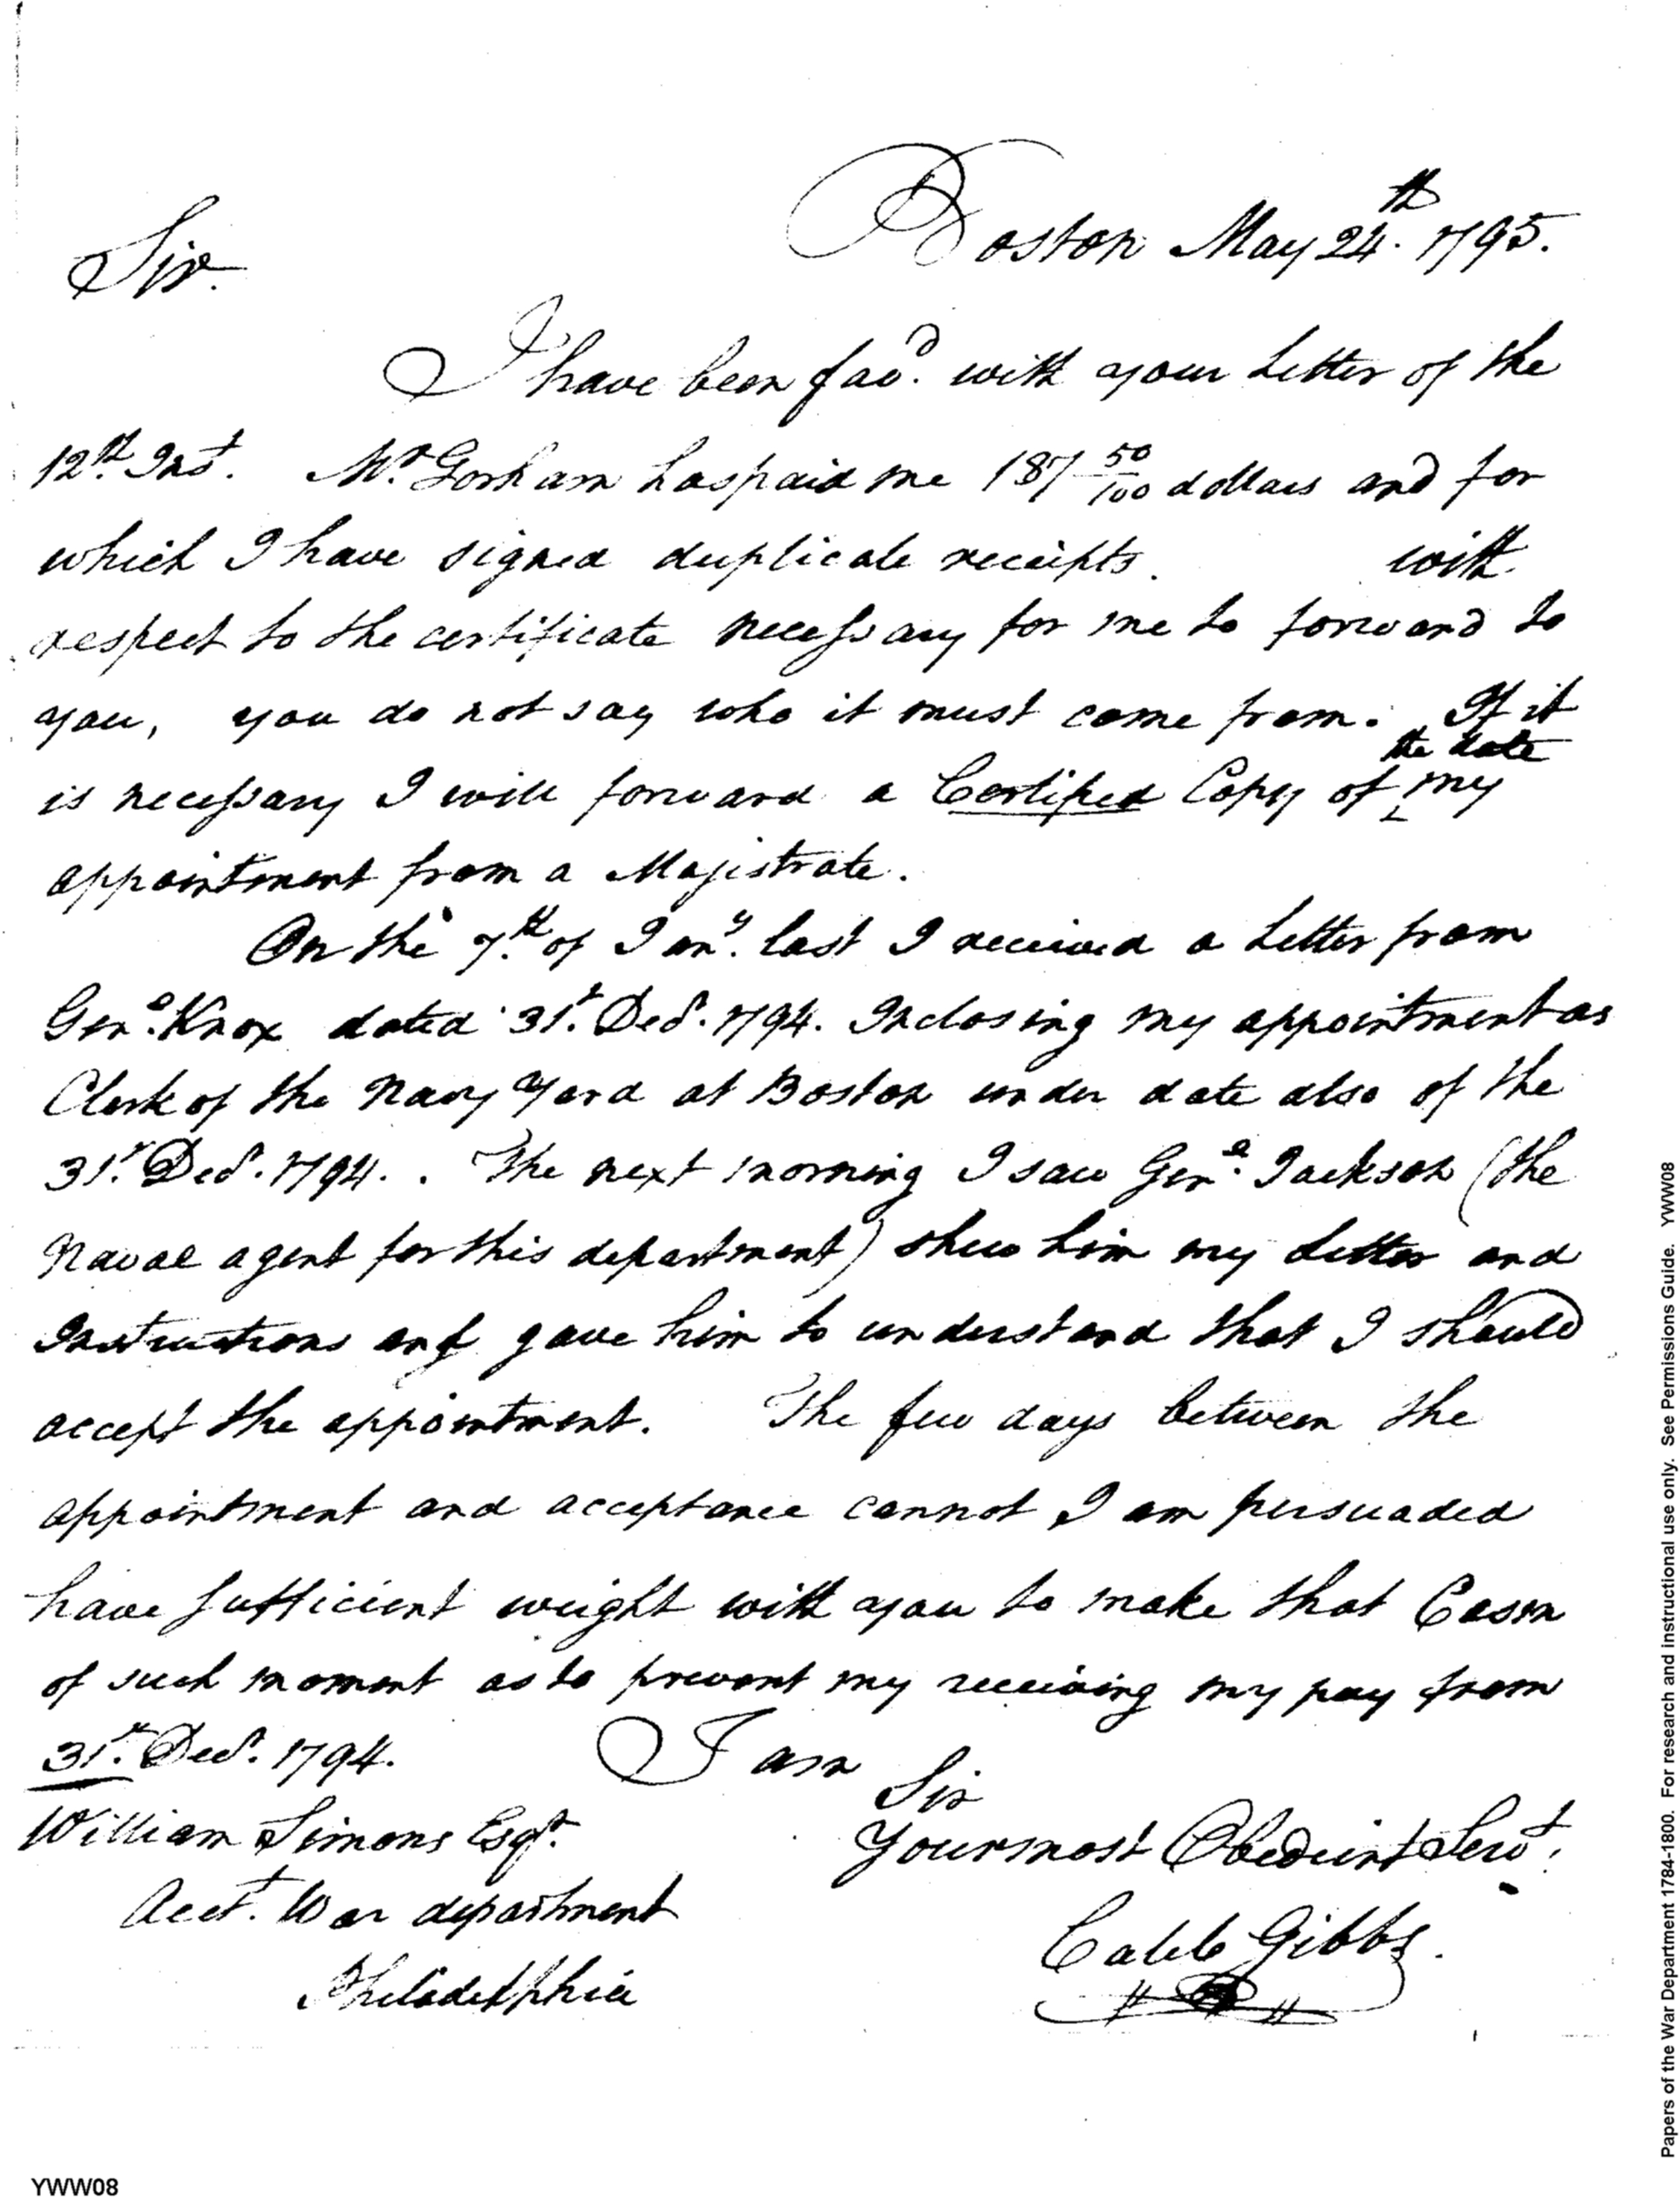 Boston May 24th. 1795.
Sir.
I have been favd. with your Letter of the
12th. Inst. Mr. Gorham has paid me 187 50/100 dollars and for
which I have signed duplicate receipts. with
respect to the certificate necessary for me to forward to
you, you do not say who it must come from. If it
is necessary I will forward a Certified Copy of the date my
appointment from a Majistrate.
On the 7th. of Jany. last I received a Letter from
Genl. Knox dated 31st. Decr. 1794. Inclosing my appointment as
Clerk of the Navy Yard at Boston under date also of the
31st. Decr. 1794. . The next morning I saw Genl. Jackson (the
Naval agent for this department) shew him my Letter and
Instructions and gave him to understand that I should
accept the appointment. The few days between the
appointment and acceptance cannot I am persuaded
have sufficient weight with you to make that
of such moment as to prevent my receiving my pay from
31st. Decr. 1794. I am
Sir
Your most Obedient Servt.
William Simons Esqr.
Acct. War department
Philadelphia
Caleb Gibbs.
YWW08
Papers of the War Department 1784-1800. For research and instructional use only. See Permissions Guide. YWW08